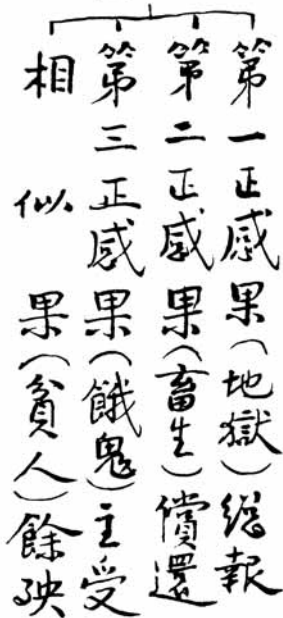 第一正感果(地獄)總報
第二正感果(畜生)償還
第三正感果(餓鬼)主受
相似果(貧人)餘殃